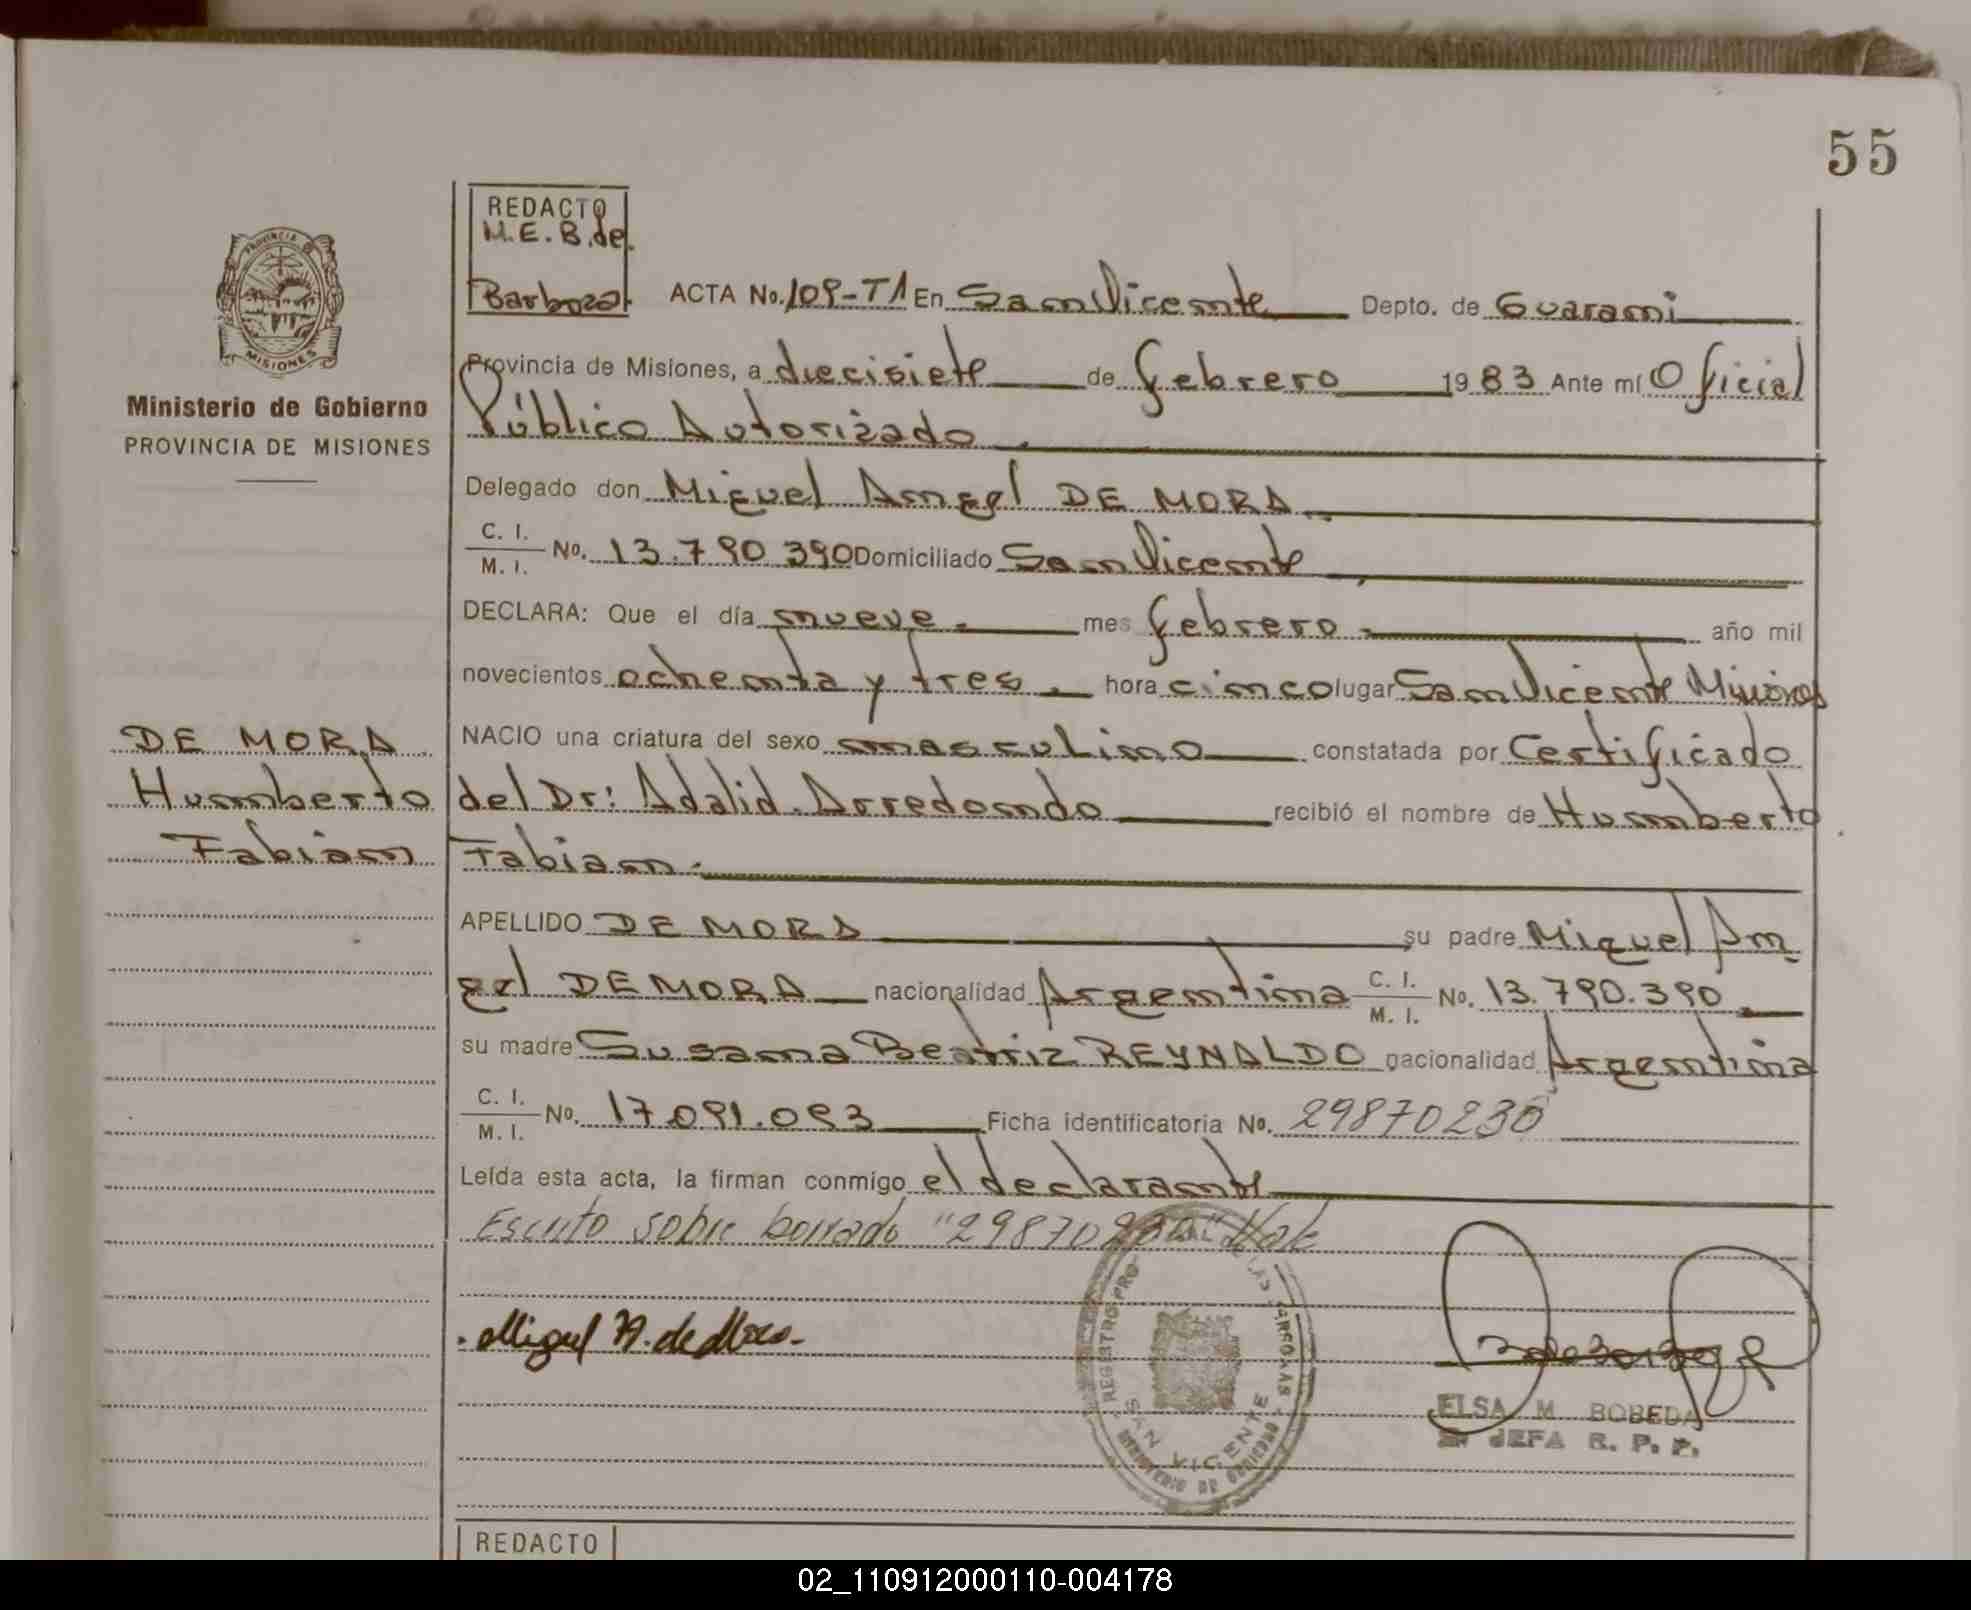 55
REDACTO
M.E.B.de
Barboza
ACTA No. 109-T1 En San Vicente Depto. de Guarani
Provincia de Misiones, a diecisiete de febrero 1983 Ante mí Oficial
Público Autorizado.
Delegado don Miguel Angel DE MORA.
C. I.
M. I.
No. 13.790.390 Domiciliado San Vicente
DECLARA: Que el día nueve. mes febrero. año mil
novecientos ochenta y tres. hora cinco lugar San Vicente Misiones
NACIO una criatura del sexo masculino constatada por Certificado
del Dr: Adalid Arredondo recibió el nombre de Humberto
Fabian.
APELLIDO DE MORA su padre Miguel An
gel DE MORA nacionalidad Argentina C. I. M. I. No. 13.790.390
su madre Susana Beatriz REYNALDO nacionalidad Argentina
C. I.
M. I.
No. 17.091.093 Ficha identificatoria No. 29870230
Leída esta acta, la firman conmigo el declarante
Escrito sobre borrado "29870230" Vale
Miguel A. de Mora.
REGISTRO PRO- DE LAS PERSONAS
SAN VICENTE
MINISTERIO DE GOBIERNO
ELSA M. BOBEDA
JEFA R. P. P.
Ministerio de Gobierno
PROVINCIA DE MISIONES
PROVINCIA
MISIONES
DE MORA
Humberto
Fabian
REDACTO
02_110912000110-004178